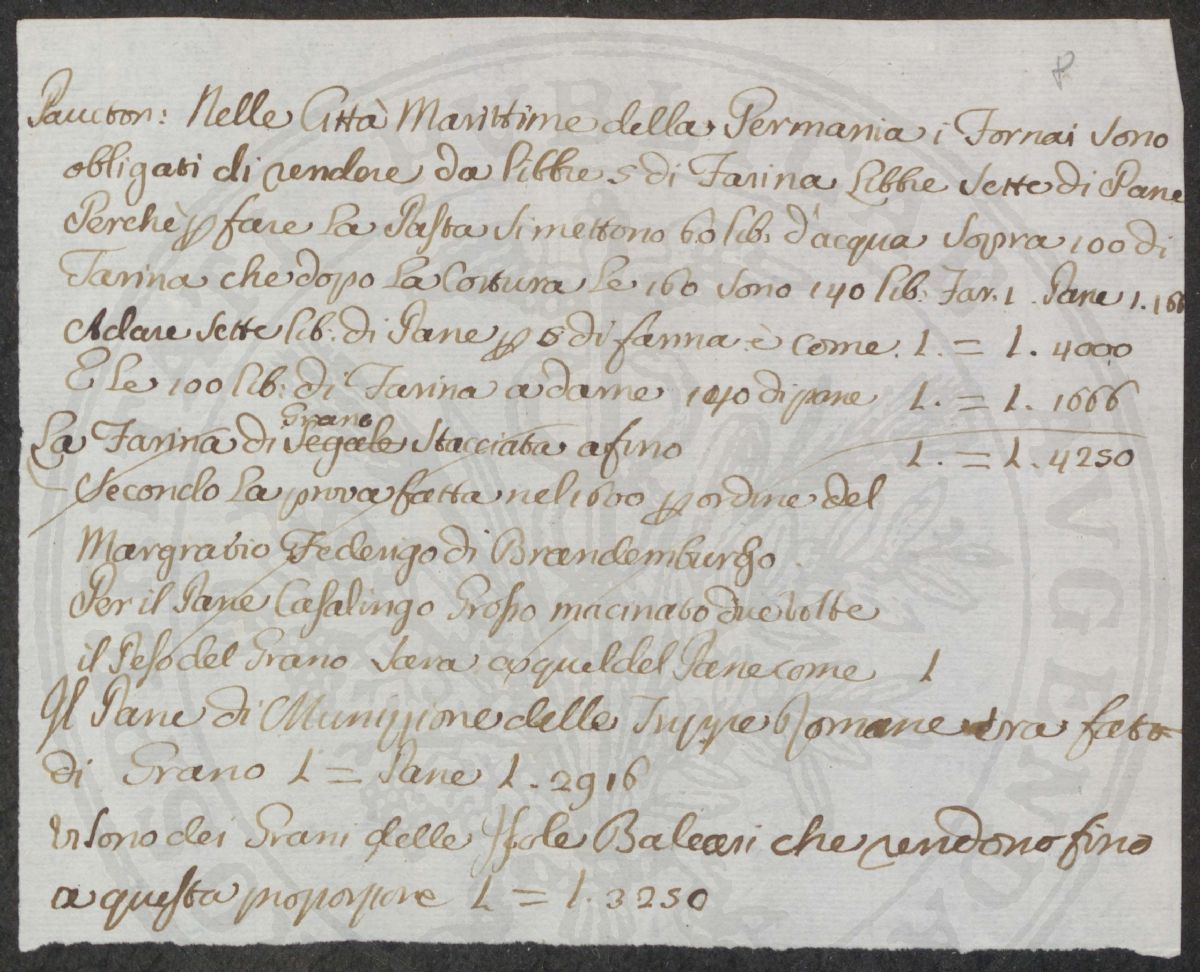 8
Paucton: Nelle Città Marittime della Germania i Fornai sono
obligati di rendere da libbre 5 di Farina Libbre sette di Pane
Perchè p fare La Pasta si mettono 60 lib: d'acqua sopra 100 di
Farina che dopo La Cottura Le 160 sono 140 lib: Far. 1. Pane 1.166
A dare sette lib: di Pane p 5 di farina è come. 1. = 1. 4000
E Le 100 lib: di Farina a darne 140 di pane 1. = 1. 1666
Grano
La Farina di Segale stacciata a fino 1. = 1. 4250
Secondo La prova fatta nel 1600 p ordine del
Margravio Federigo di Brandemburgho.
Per il Pane Casalingo Grosso macinato due volte
il Peso del Grano sara a quel del Pane come 1
Il Pane di Munizzione delle Truppe Romane era fatto
di Grano 1 = Pane 1. 2916
vi sono dei Grani delle Isole Baleari che rendono fino
a questa proporzione 1 = 1. 3250